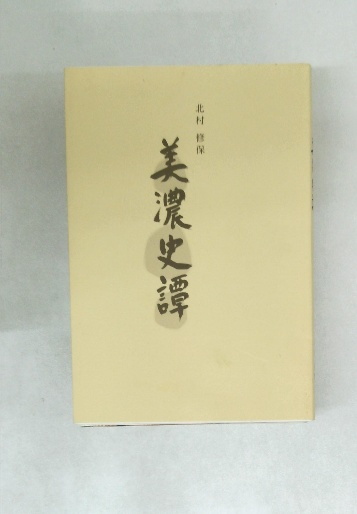 北村 修保
美濃史譚